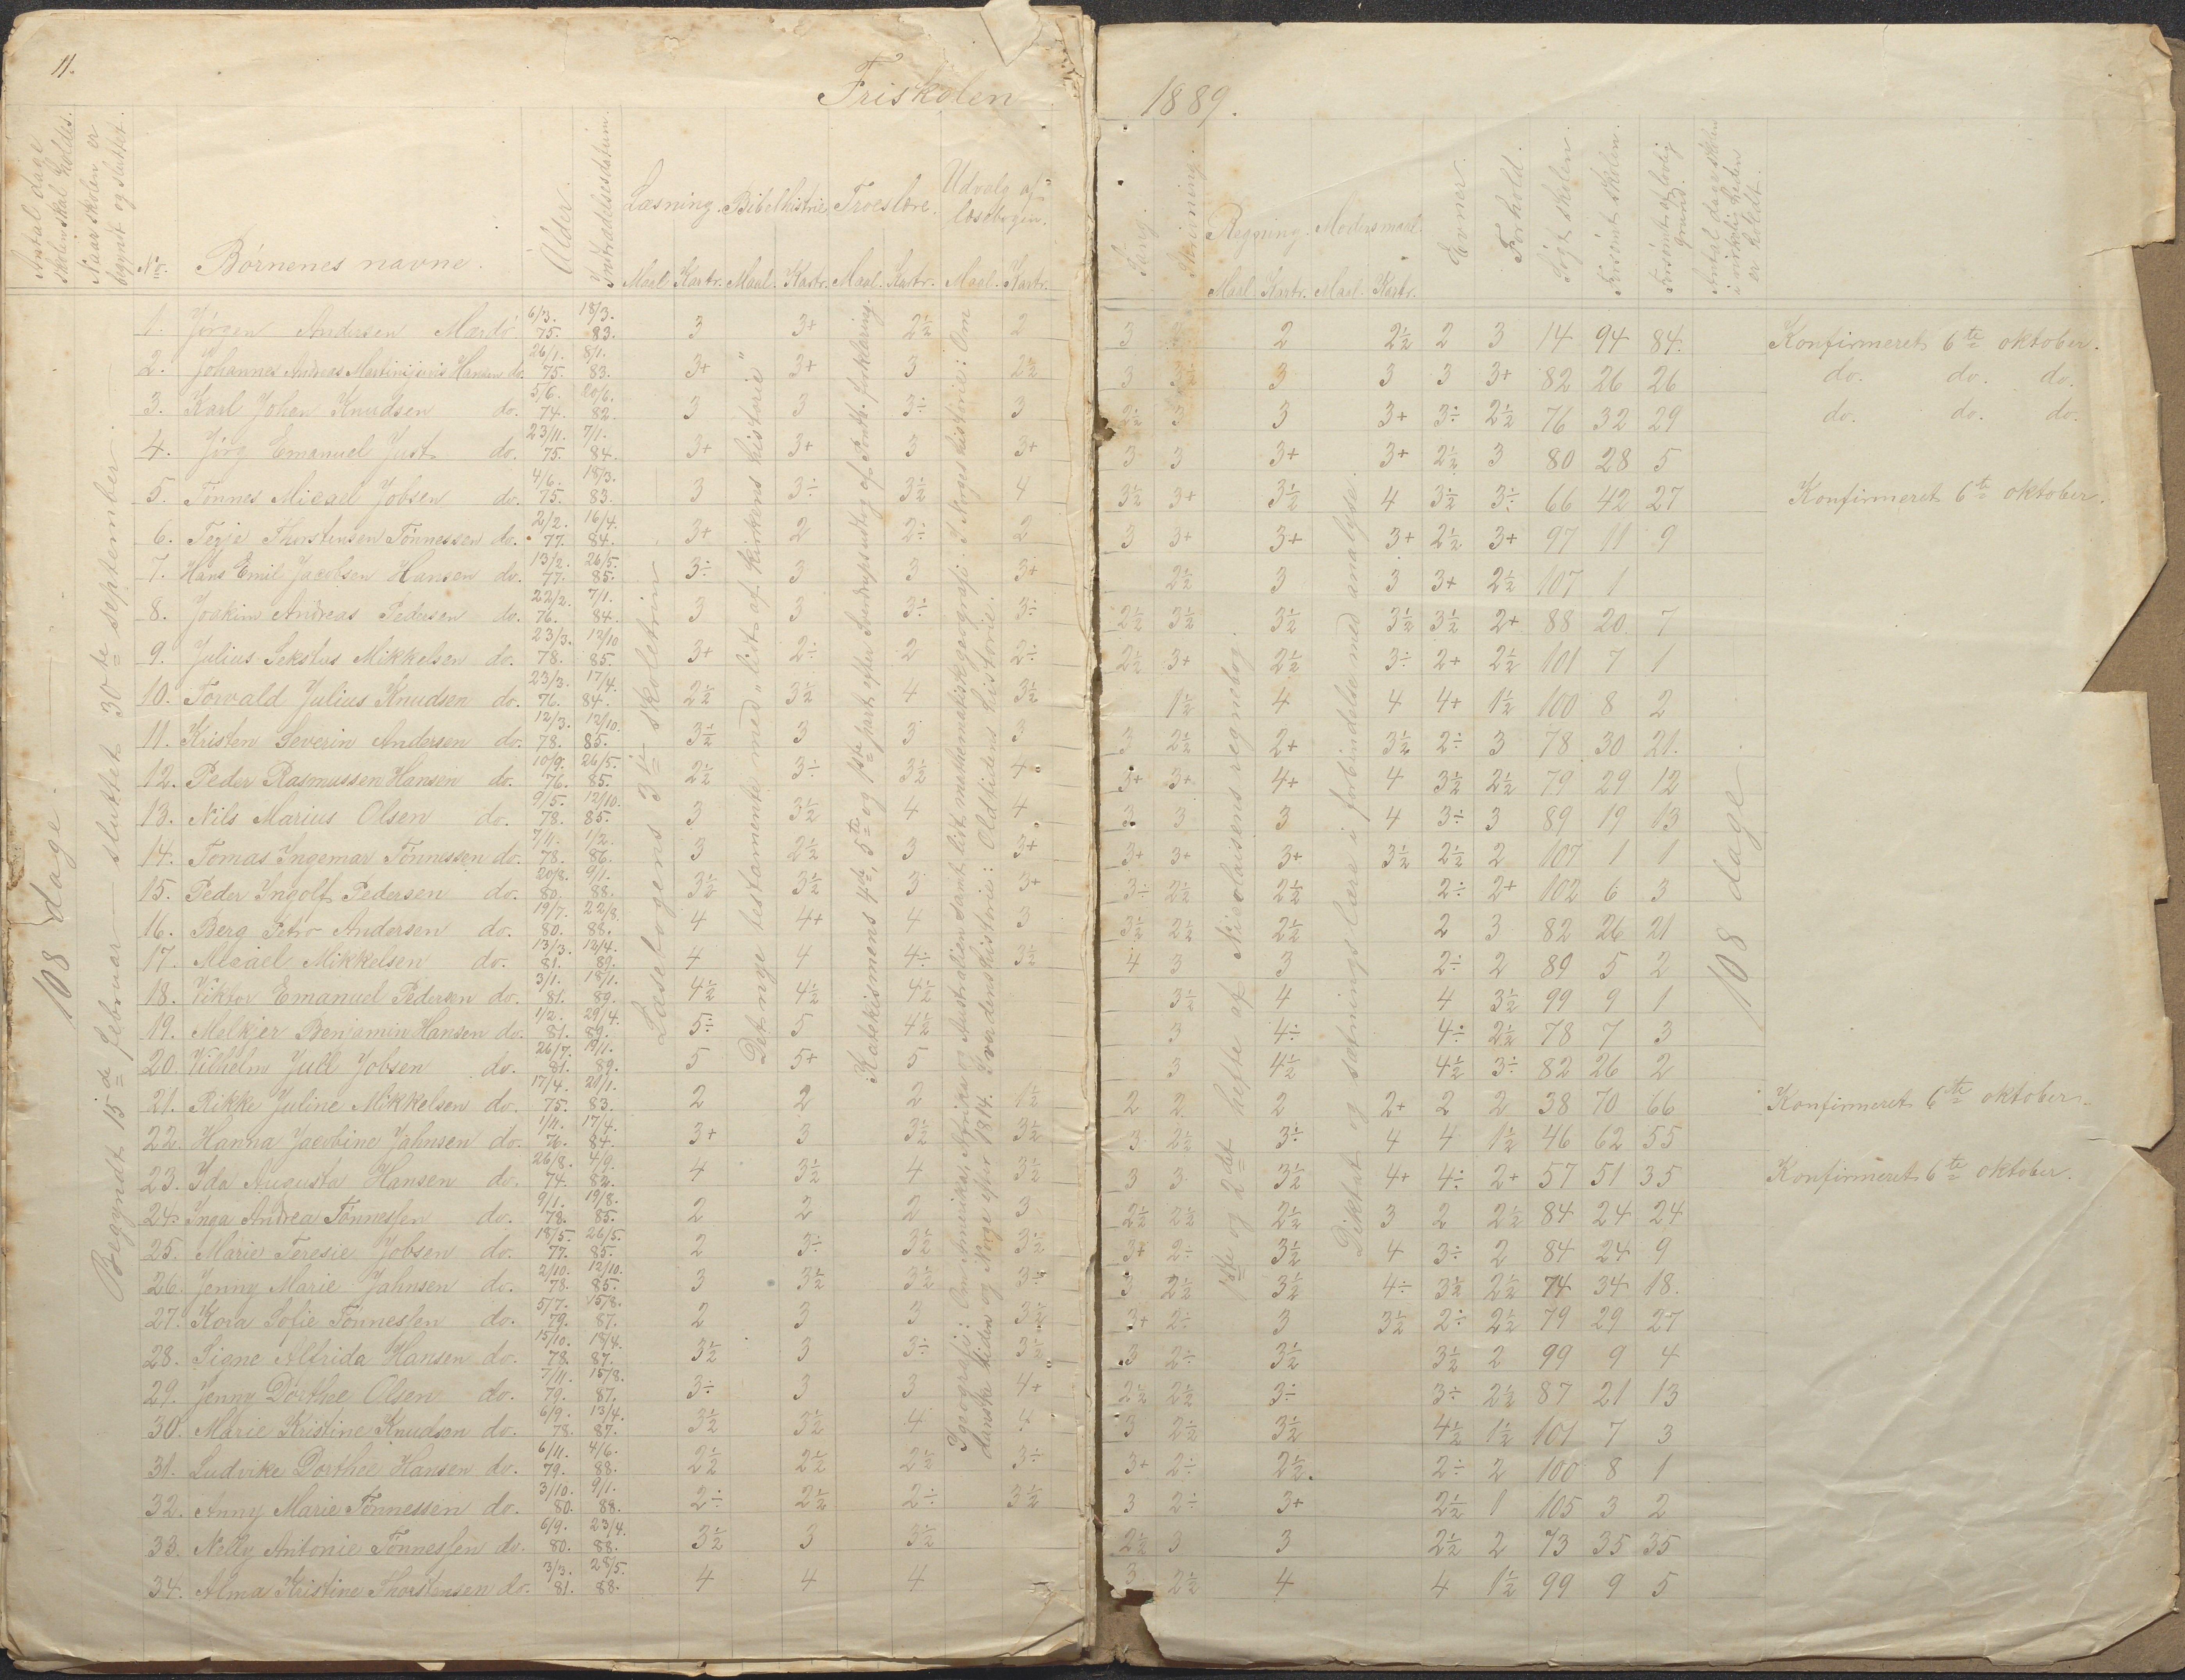 11.
Friskolen 1889.
Antal dage skolen skal holdes.
Naar skolen er begyndt og sluttet.
No. Børnenes navne. Alder. Indtrædelsesdatum. Læsning. Bibelhistrie Troeslære. Udvalg af læsebogen. Sang. Skrivning. Regning. Modersmaal. Evner. Forhold. Søgt skolen. Forsømt skolen. Forsømt af lovlig grund. Antal dage skolen i virkeligheden er holdt.
Maal Kartr. Maal. Kartr. Maal. Kartr. Maal. Kartr. Maal. Kartr. Maal. Kartr.
108 dage.
Begyndt 15de februar — sluttet 30te september.
Læsebogens 3die skoletrin
Det nye testamente med "lidt af kirkens historie"
Katekismens 4de, 5te og 1ste part efter Sverdrups udtog af Pontb. forklaring.
Igeografi: Om Amerika, Afrika og Australien samt lidt mathematiskgeografi. I Norges historie: Om
danske tiden og Norge efter 1814. I verdenshistorie: Oldtidens historie.
1ste og 2det hefte af Nicolaisens regnebog.
Diktat og sætningslære i forbindelse med analyse.
108 dage
1. Jørgen Andersen Mærdø 6/3. 75. 18/3. 83. 3 3+ 2½ 2 3 2 2 2½ 2 3 14 94 84. Konfirmeret 6te oktober.
2. Johannes Andreas Martinijunis Hansen do. 26/1. 75. 8/1. 83. 3+ 3+ 3 2½ 3 3½ 3 3 3 3+ 82 26 26 do. do. do.
3. Karl Johan Knudsen do. 5/6. 74. 20/6. 82. 3 3 3÷ 3 2½ 3 3 3+ 3÷ 2½ 76 32 29 do. do. do.
4. Jørg Emanuel Just do. 23/11. 75. 7/1. 84. 3+ 3+ 3 3+ 3 3 3+ 3+ 2½ 3 80 28 5
5. Tønnes Micael Jobsen do. 4/6. 75. 18/3. 83. 3 3÷ 3½ 4 3½ 3+ 3½ 4 3½ 3÷ 66 42 27 Konfirmeret 6te oktober.
6. Terje Thorstensen Tønnessen do. 2/2. 77. 16/4. 84. 3+ 2 2÷ 2 3 3+ 3+ 3+ 2½ 3+ 97 11 9
7. Hans Emil Jacobsen Hansen do. 13/2. 77. 26/5. 85. 3÷ 3 3 3+ 2½ 3 3 3+ 2½ 107 1
8. Joakim Andreas Pedersen do. 22/2. 76. 7/1. 84. 3 3 3÷ 3÷ 2½ 3½ 3½ 3½ 3½ 2+ 88 20 7
9. Julius Sekstus Mikkelsen do. 23/3. 78. 12/10 85. 3+ 2÷ 2 2÷ 2½ 3+ 2½ 3÷ 2+ 2½ 101 7 1
10. Torvald Julius Knudsen do. 23/3. 76. 17/4. 84. 2½ 3½ 4 3½ 1½ 4 4 4+ 1½ 100 8 2
11. Kristen Severin Andersen do. 12/3. 78. 12/10. 85. 3½ 3 3 3 3 2½ 2+ 3½ 2÷ 3 78 30 21.
12. Peder Rasmussen Hansen do. 10/9. 76. 26/5. 85. 2½ 3÷ 3½ 4 3+ 3+ 4+ 4 3½ 2½ 79 29 12
13. Nils Marius Olsen do. 9/5. 78. 12/10. 85. 3 3½ 4 4 3 3 3 4 3÷ 3 89 19 13
14. Tomas Ingemar Tønnessen do. 7/11. 78. 1/2. 86. 3 2½ 3 3+ 3+ 3+ 3+ 3½ 2½ 2 107 1 1
15. Peder Ingolf Pedersen do. 20/8. 80. 9/1. 88. 3½ 3½ 3 3+ 3÷ 2½ 2½ 2÷ 2+ 102 6 3
16. Berg Petro Andersen do. 19/7. 80. 22/8. 88. 4 4+ 4 3 3½ 2½ 2½ 2 3 82 26 21
17. Micael Mikkelsen do. 13/3. 81. 12/4. 89. 4 4 4÷ 3½ 4 3 3 2÷ 2 89 5 2
18. Viktor Emanuel Pedersen do. 3/1. 81. 18/1. 89. 4½ 4½ 4½ 3½ 4 4 3½ 99 9 1
19. Melkjer Benjamin Hansen do. 1/2. 81. 29/4. 89. 5÷ 5 4½ 3 4÷ 4÷ 2½ 78 7 3
20. Vilhelm Juel Jobsen do. 26/7. 81. 19/1. 89. 5 5+ 5 3 4½ 4½ 3÷ 82 26 2
21. Rikke Juline Mikkelsen do. 17/4. 75. 20/1. 83. 2 2 2 1½ 2 2 2 2+ 2 2 38 70 66 Konfirmeret 6te oktober.
22. Hanna Jacobine Jahnsen do. 1/11. 76. 17/4. 84. 3+ 3 3½ 3½ 3 2½ 3÷ 4 4 1½ 46 62 55
23. Ida Augusta Hansen do. 26/8. 74. 4/9. 82. 4 3½ 4 3½ 3 3 3½ 4+ 4÷ 2+ 57 51 35 Konfirmeret 6te oktober.
24. Inga Andrea Tønnessen do. 9/1. 78. 19/8. 85. 2 2 2 3 2½ 2½ 2½ 3 2 2½ 84 24 24
25. Marie Teresie Jobsen do. 18/5. 77. 26/5. 85. 2 3÷ 3½ 3½ 3+ 2÷ 3½ 4 3÷ 2 84 24 9
26. Jenny Marie Jahnsen do. 2/10. 78. 12/10. 85. 3 3½ 3½ 3÷ 3 2½ 3½ 4÷ 3½ 2½ 74 34 18.
27. Kora Sofie Tønnessen do. 5/7. 79. 15/8. 87. 2 3 3 3½ 3+ 2÷ 3 3½ 2÷ 2½ 79 29 27
28. Signe Alfrida Hansen do. 15/10. 78. 18/4. 87. 3½ 3 3÷ 3½ 3 2÷ 3½ 3½ 2 99 9 4
29. Jenny Dorthee Olsen do. 7/11. 79. 15/8. 87. 3÷ 3 3 4+ 2½ 2½ 3÷ 3÷ 2½ 87 21 13
30. Marie Kristine Knudsen do. 6/9. 78. 13/4. 87. 3½ 3½ 4 4 3 2½ 3½ 4½ 1½ 101 7 3
31. Ludvike Dorthee Hansen do. 6/11. 79. 4/6. 88. 2½ 2½ 2½ 3÷ 3+ 2÷ 2½. 2÷ 2 100 8 1
32. Anny Marie Tønnessen do. 3/10. 80. 9/1. 88. 2÷ 2½ 2÷ 3½ 3 2÷ 3+ 2½ 1 105 3 2
33. Nelly Antonie Tønnessen do. 6/9. 80. 23/4. 88. 3½ 3 3½ 2½ 3 3 2½ 2 73 35 35
34. Alma Kristine Thorstensen do. 3/3. 81. 28/5. 88. 4 4 4 3 2½ 4 4 1½ 99 9 5